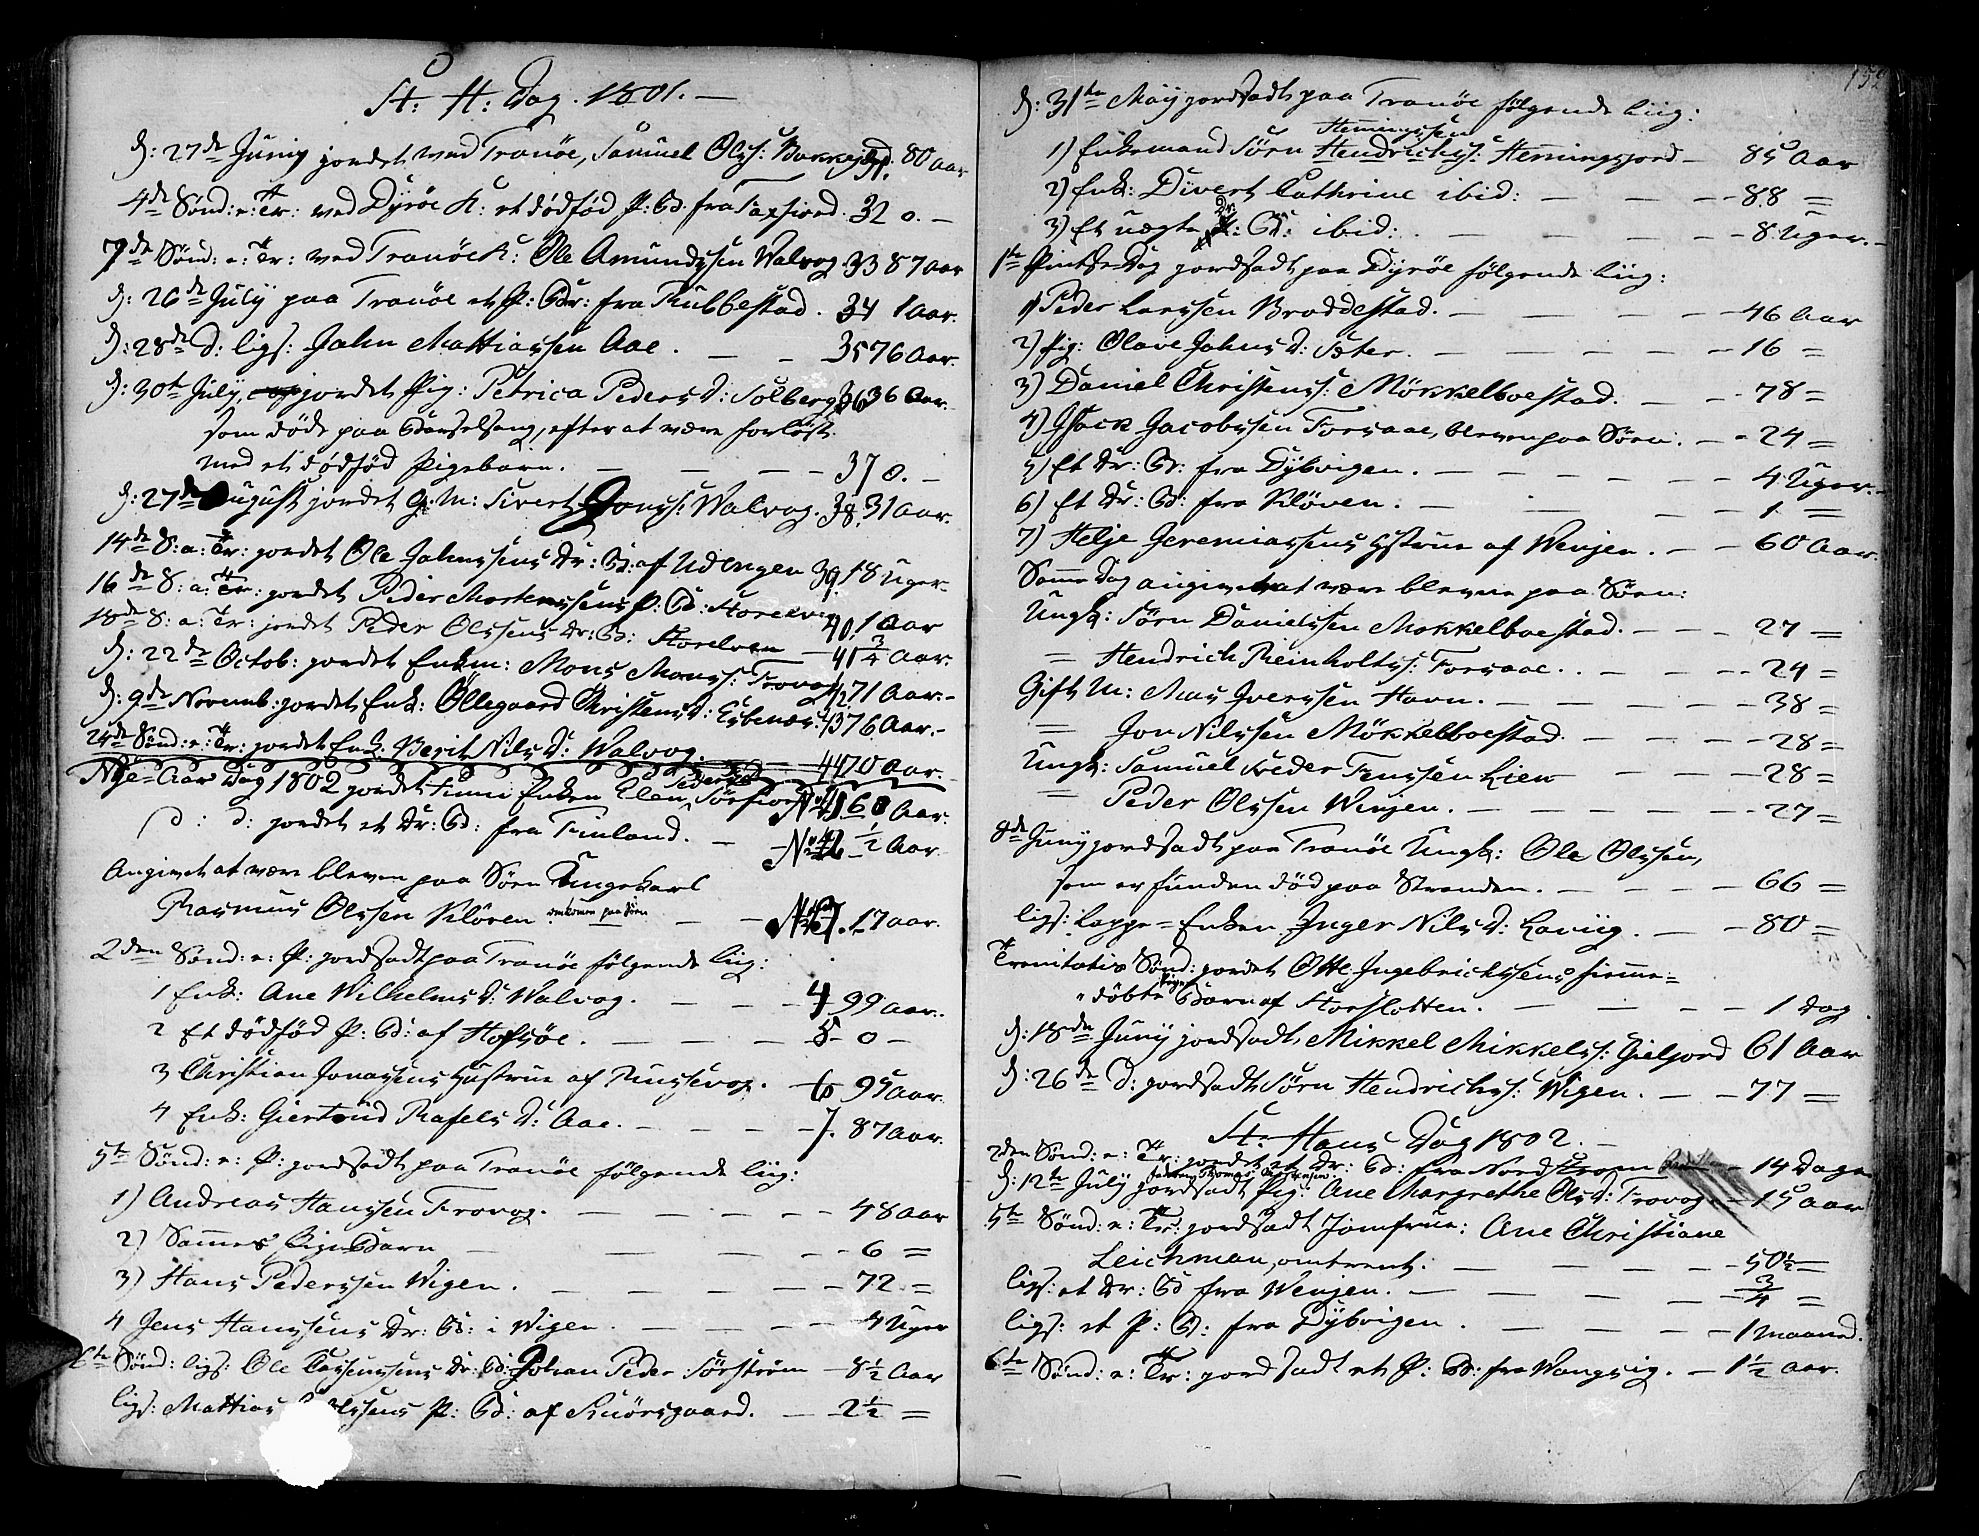 St: H: Dag. 1801. —
d: 27de Juniy jordet ved Tranöe, Samuel Olss: Bakkejord 31. 80 aar
4de Sönd: e: Tr: ved Dyröe K: et dödföd P: B: fra Taxfiord. 32 0. —
7de Sönd: e: Tr: ved Tranöe K: Ole Amundssen Walvog 33 87 aar
d: 26de July paa Tranöe et P: Bar: fra Rubbestad. 34 1 Aar.
d: 28de d: ligs: John Mattiassen Aae. — — 35 76 Aar.
d: 30te July jordet Pig: Petrica Peders D: Solberg 36 36 Aar.
som döde paa Barselsæng, efter at være forlöst
med et dödföd Pigebarn. — — — 37 0. —
d: 27de August jordet G: M: Sivert Jonss: Walvog. 38. 31 Aar.
14de S: a: Tr: jordet Ole Johnssens Dr: B: af Udengen 39. 18 Uger
16de S: a: Tr: jordet Peder Mortenssens P: B: Storelv 40. 1 Aar
18de S: a: Tr: jordet Peder Olssens Dr: B: Storelven — 41 3/4 Aar.
d: 22de Octob: jordet Enkm: Mons Monss: Trovog 42 71 Aar. —
d: 9de Novemb: jordet Enk: Öllegaard Christens D: Esbenæs 43 76 Aar. —
24de Sönd: e: Tr: jordet Enk: Berit Nils D: Walvog. 44 70 Aar.
Nye-Aar Dag 1802 jordet Finne Enken Elen Peders D Sörfiord No 1 60 Aar.
d: d: jordet et Dr: B: fra Finland. — No 2 — 1/2 Aar
Angivet at være bleven paa Söen Ungekarl
Rasmus Olssen Klöven omkomen paa Söen — — No 3. 17 aar.
2den Sönd: e: P: jordfædt paa Tranöe fölgende Liig:
1 Enk: Ane Wilhelms D: Walvog. — — — 4 99 aar.
2 Et dödföd P: B: af Hofsöe. — — — — 5 — 0 —
3 Christian Jonassens Hustrue af Russevog. — 6 95 aar.
4 Enk: Giertrud Rafels D: Aae. — — — — 7. 87 aar.
5te Sönd: e: P: jordfædt paa Tranöe fölgende Liig:
1) Andreas Hanssen Trovog. — — — — 48 aar
2) Sammes Pigebarn — — — — 6 =
3) Hans Pederssen Wigen. — — — — 72 =
4 Jens Hanssens Dr: B: i Wigen. — — — 4 Uger
6te Sönd: ligs: Ole Dr: B: Johan Peder Sörström — 8 1/2 Aar
ligs: Mattias P: B: af Knörsgaard. — 2 1/2 =
d: 31te May jordfædt paa Tranöe fölgende Liig:
Hemingssen
1) Enkemand Sörn Hendrichss: Hemingsjord — 85 Aar
2) Enk: Divert Cathrine ibid: — — — 88 =
3) Et uægte Dr: B: ibid: — — — 8 Uger. —
1te Pintse Dag jordfædt paa Dyröe fölgende Liig:
1) Peder Larssen Broddestad. — — — 46 Aar
2) Pig: Olave Johns D: Sæter. — — — 16 =
3) Daniel Christenss: Mökkelboestad. — — 78 =
4) Isack Jacobssen Forsaae, bleven paa Söen. — 24 =
5) Et Dr: B: fra Dybvigen. — — — 4 Uger. —
6) Et Dr: B: fra Klöven. — — — 1 =
7) Helje Geremiassens Hustrue af Wenjen. — — 60 Aar.
Samme Dag angivet at være blevne paa Söen:
Ungk: Sörn Danielssen Mokkelboestad. — — — 27 =
= Hendrich Reinholtss: Forsaae. — — — 24 =
Gift M: Mas Iverssen Havn. — — — 38 =
= Jon Nilssen Mökkelboestad. — — 28 =
Ungk: Samuel Feder Tenssen Lien — — — 28 =
= Peder Olssen Wenjen. — — — 27 =
8de Juny jordfædt paa Tranöe Ungk: Ole Olssen,
som er funden död paa Stranden. — — — 66 =
ligs: Lappe-Enken Inger Nils D: Laviig. — — 80 =
Trenitatis Sönd: jordet Otte Ingebrichtssens hieme-
döbte Pige Barn af Storslotten. — — — 1 dag
d: 18de Juny jordfædt Mikkel Mikkelss: Gieljord 61 Aar
d: 26de d: jordfædt Sörn Hendrichss: Wigen. — — 77 =
St: Hans Dag 1802. —
2den Sönd: e: Tr: jordet et Dr: B: fra Nordstrøm — 14 Dage
d: 12te July jordfædt Pig: Ane Margrethe Ols D: Trovog — 15 aar
5te Sönd: e: Tr: jordfædt Jomfrue: Ane Christiane
Leichman, omtrent. — — — 50 1/2 =
ligs: et Dr: B fra Wenjen. — — — 3/4 =
ligs: et P: B: fra Dybvigen — — — 1 Maaned.
6te Sönd: e: Tr: jordfædt et P: B: fra Wangvig. — 1 1/2 aar.